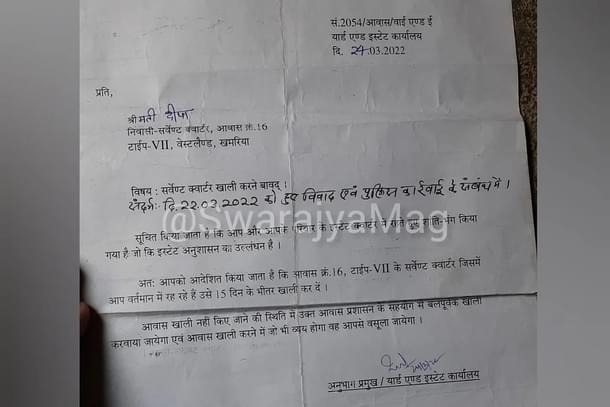 सं.2054/आवास/वाई एण्ड ई
यार्ड एण्ड इस्टेट कार्यालय
दि. 24.03.2022
प्रति,
श्रीमती दीपा
निवासी-सर्वेण्ट क्वार्टर, आवास क्रं.16
टाईप-VII, वेस्टलैण्ड, खमरिया
विषय : सर्वेण्ट क्वार्टर खाली करने बावद् ।
संदर्भ:- दि. 22.03.2022 को हुए विवाद एवं पुलिस कार्रवाई के संबंध में ।
सूचित किया जाता है कि आप और आपके परिवार के इस्टेट क्वार्टर में रहते हुए शांति-भंग किया
गया है जो कि इस्टेट अनुशासन का उल्लंघन है ।
@SwarajyaMag
अतः आपको आदेशित किया जाता है कि आवास क्रं.16, टाईप-VII के सर्वेण्ट क्वार्टर जिसमें
आप वर्तमान में रह रहे हैं उसे 15 दिन के भीतर खाली कर दें ।
आवास खाली नहीं किए जाने की स्थिति में उक्त आवास प्रशासन के सहयोग से बलपूर्वक खाली
करवाया जायेगा एवं आवास खाली करने में जो भी व्यय होगा वह आपसे वसूला जायेगा ।
अनुभाग प्रमुख / यार्ड एण्ड इस्टेट कार्यालय